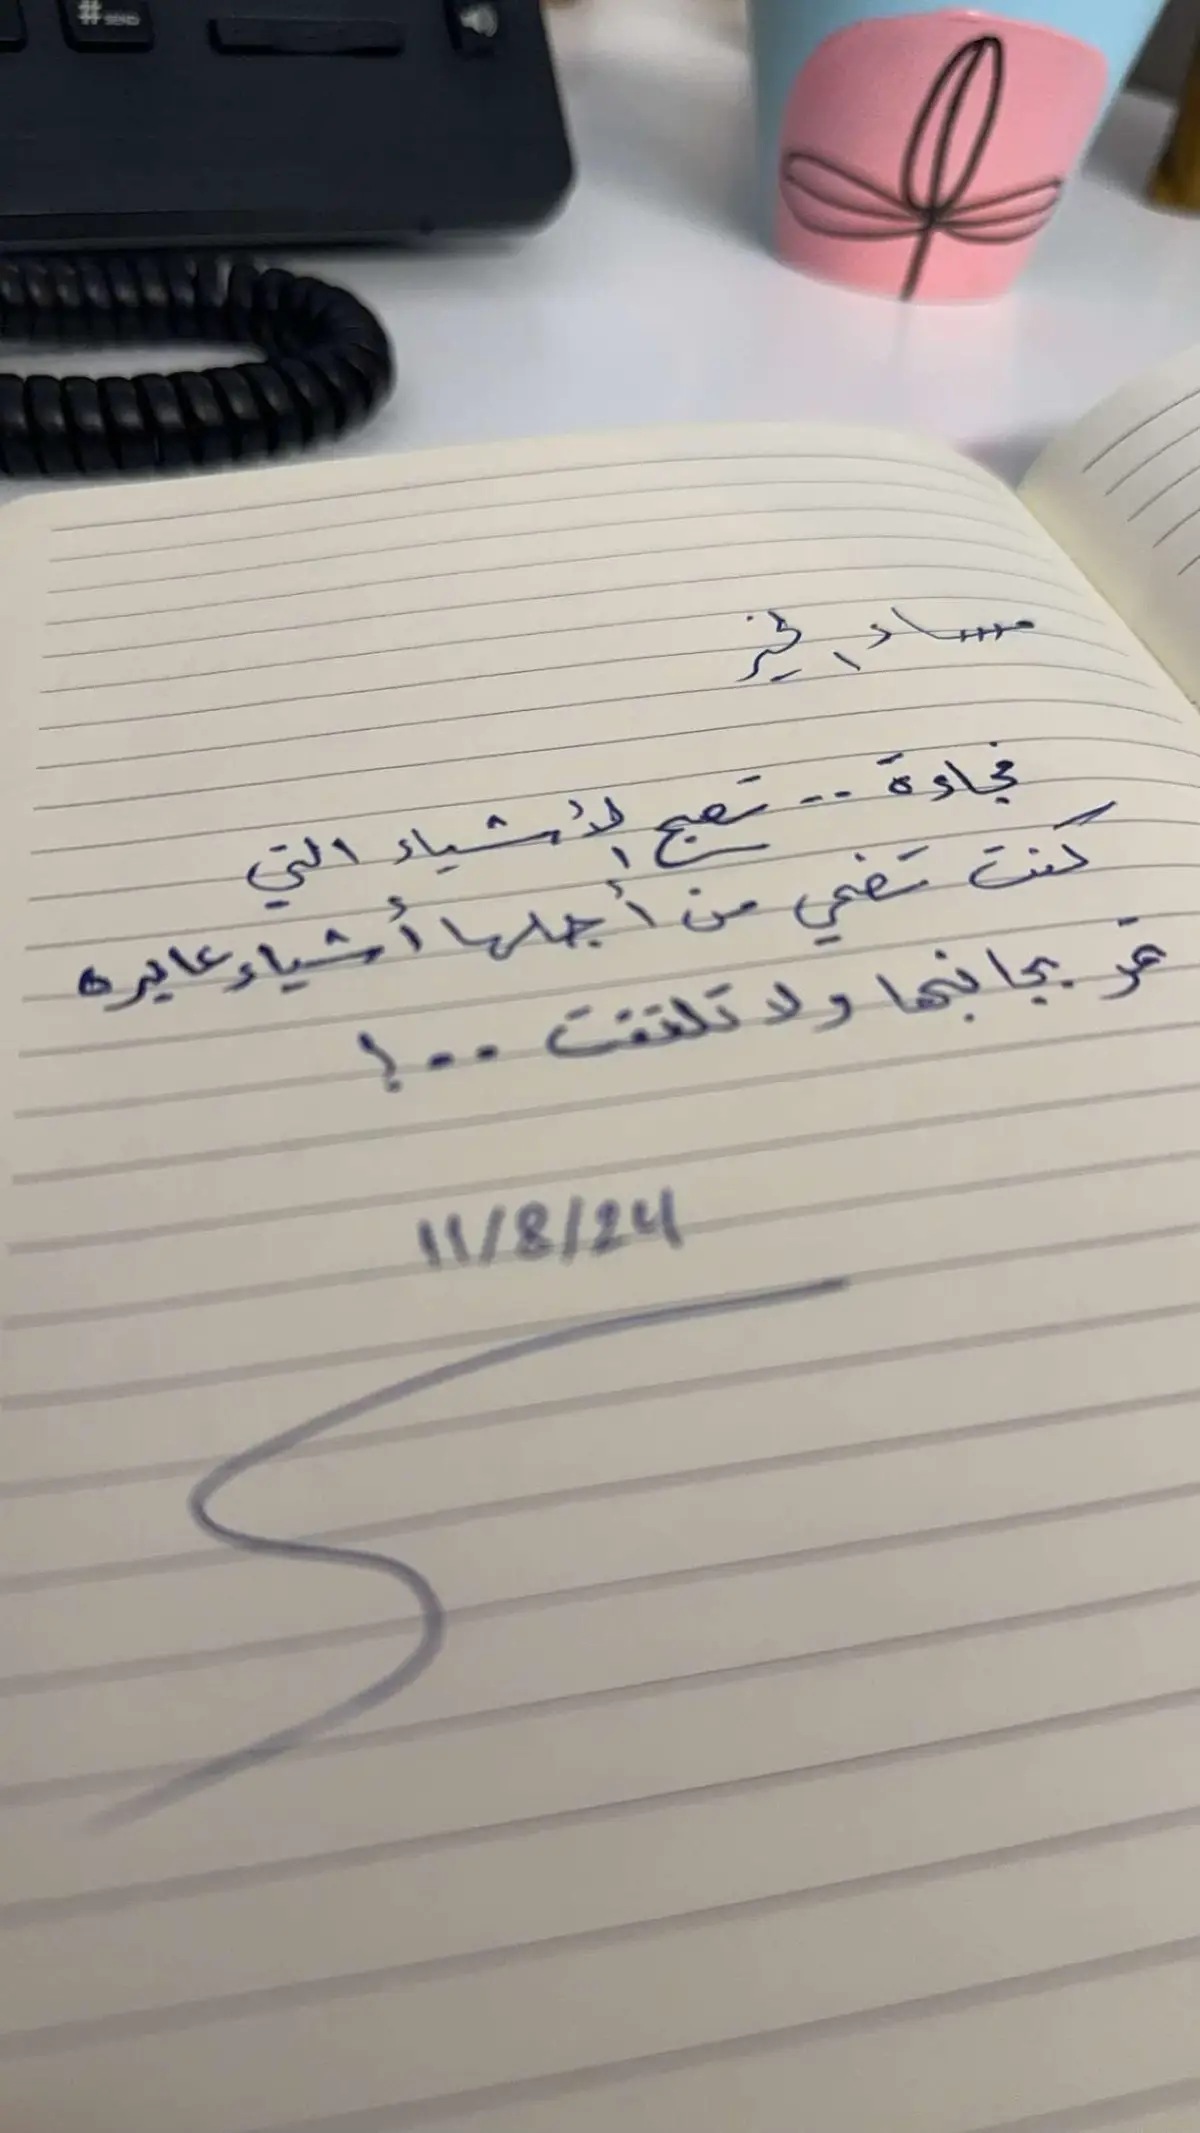 # SEND
مساء الخير
فجاءة .. تصبح الأشياء التي
كنت تضحي من أجلها أشياء عابره
تمر بجانبها ولا تلتفت ..!
11/8/24